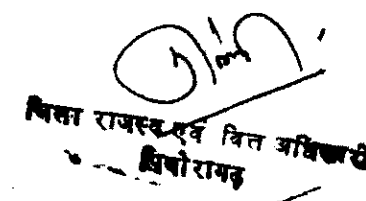 जिला राजस्व एवं वित्त अधिकारी
पिथोरागढ़